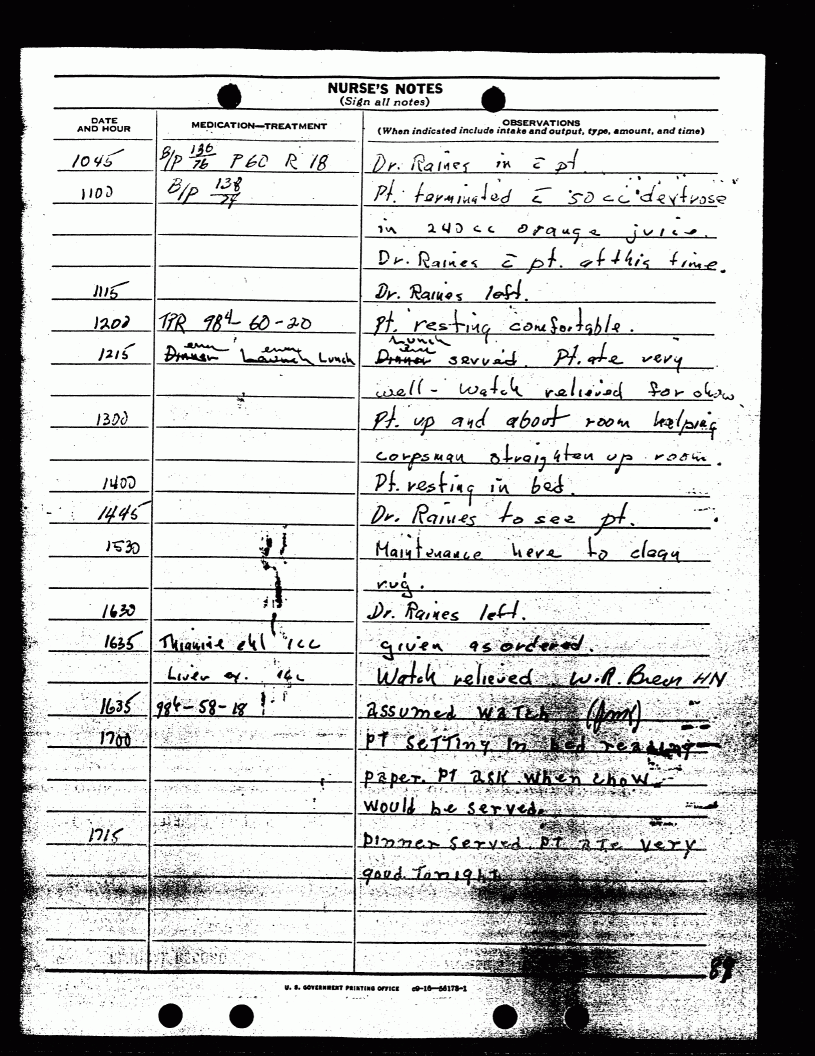 NURSE'S NOTES
(Sign all notes)
DATE AND HOUR
MEDICATION—TREATMENT
OBSERVATIONS
(When indicated include intake and output, type, amount, and time)
1045 B/P 136/76 P60 R 18 Dr. Raines in c̄ pt
1100 B/P 138/74 Pt. terminated c̄ 50 cc dextrose
in 240 cc orange juice.
Dr. Raines c̄ pt. at this time.
1115 Dr. Raines left.
1200 TPR 98⁴-60-20 Pt. resting comfortable.
1215 Dinner Launch Lunch Dinner Lunch served. Pt. ate very
well - Watch relieved for chow
1300 Pt. up and about room helping
corpsman straighten up room.
1400 Pt. resting in bed.
1445 Dr. Raines to see pt.
1530 Maintenance here to clean
rug.
1630 Dr. Raines left.
1635 Thiamine chl 1cc given as ordered.
Liver ex. 1cc Watch relieved W.R.
HN
1635 98⁶-58-18 assumed watch
1700 PT setting in bed reading
paper. PT ask when chow
would be served.
1715 Dinner served PT ate very
good tonight
89
U. S. GOVERNMENT PRINTING OFFICE